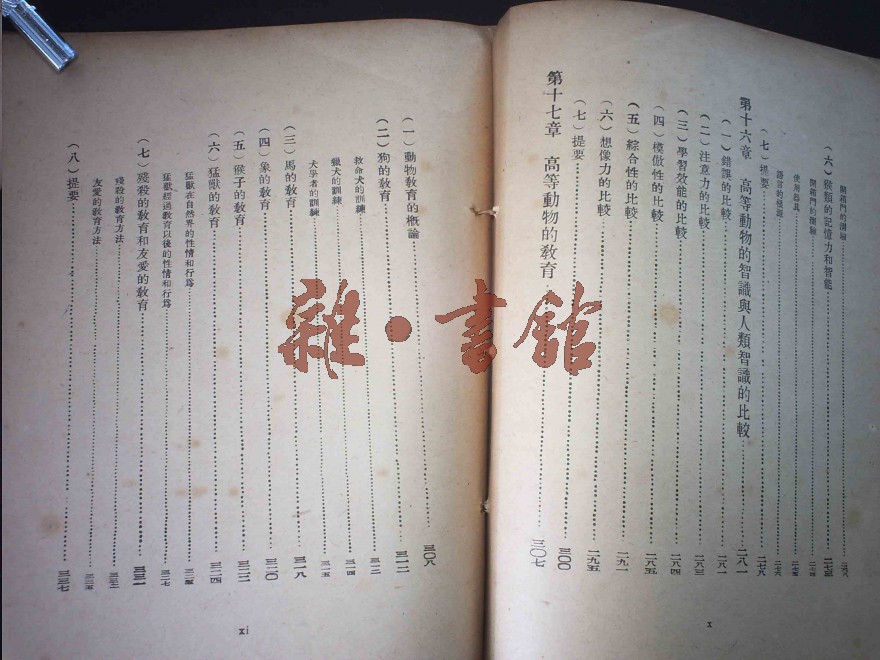 開箱門的測驗……二六八
(六) 猴類的記憶力和智能……二七三
開箱門的測驗……二七四
使用器具……二七五
語言的種類……二七六
(七) 提要……二七八
第十六章 高等動物的智識與人類智識的比較……二八一
(一) 錯誤的比較……二八一
(二) 注意力的比較……二八三
(三) 學習效能的比較……二八四
(四) 模倣性的比較……二八五
(五) 綜合性的比較……二九一
(六) 想像力的比較……二九五
(七) 提要……三〇〇
第十七章 高等動物的教育……三〇七
x
(一) 動物教育的概論……三〇八
(二) 狗的教育……三一二
救命犬的訓練……三一二
獵犬的訓練……三一四
犬學者的訓練……三一五
(三) 馬的教育……三一八
(四) 象的教育……三二〇
(五) 猴子的教育……三二二
(六) 猛獸的教育……三二四
猛獸在自然界的性情和行爲
猛獸經過教育以後的性情和行爲……三二七
(七) 殘殺的教育和友愛的教育……三三一
殘殺的教育方法
友愛的教育方法……三三五
(八) 提要……三三七
xi
雜·書館